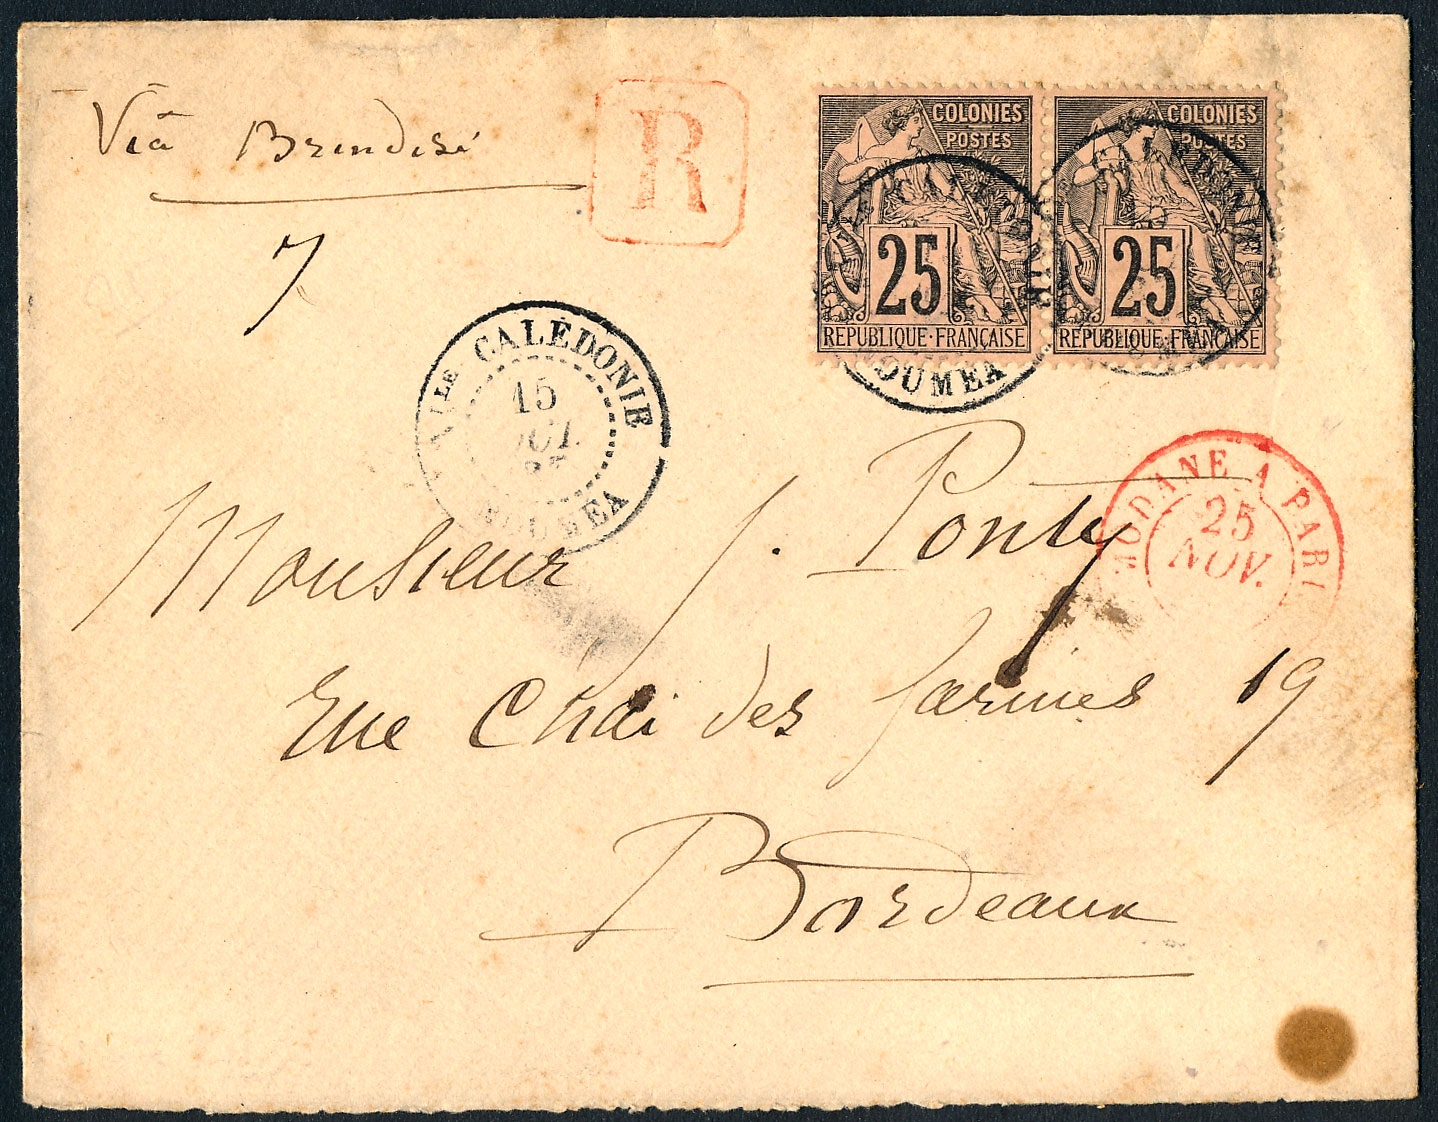 Via Brindisi
R
7
COLONIES
POSTES
25
REPUBLIQUE·FRANÇAISE
COLONIES
POSTES
25
REPUBLIQUE·FRANÇAISE
NOUMEA
Lle CALÉDONIE
15
OCT.
NOUMEA
MODANE A PARI
25
NOV.
Monsieur J. Ponty
rue Chai des farines 19
Bordeaux